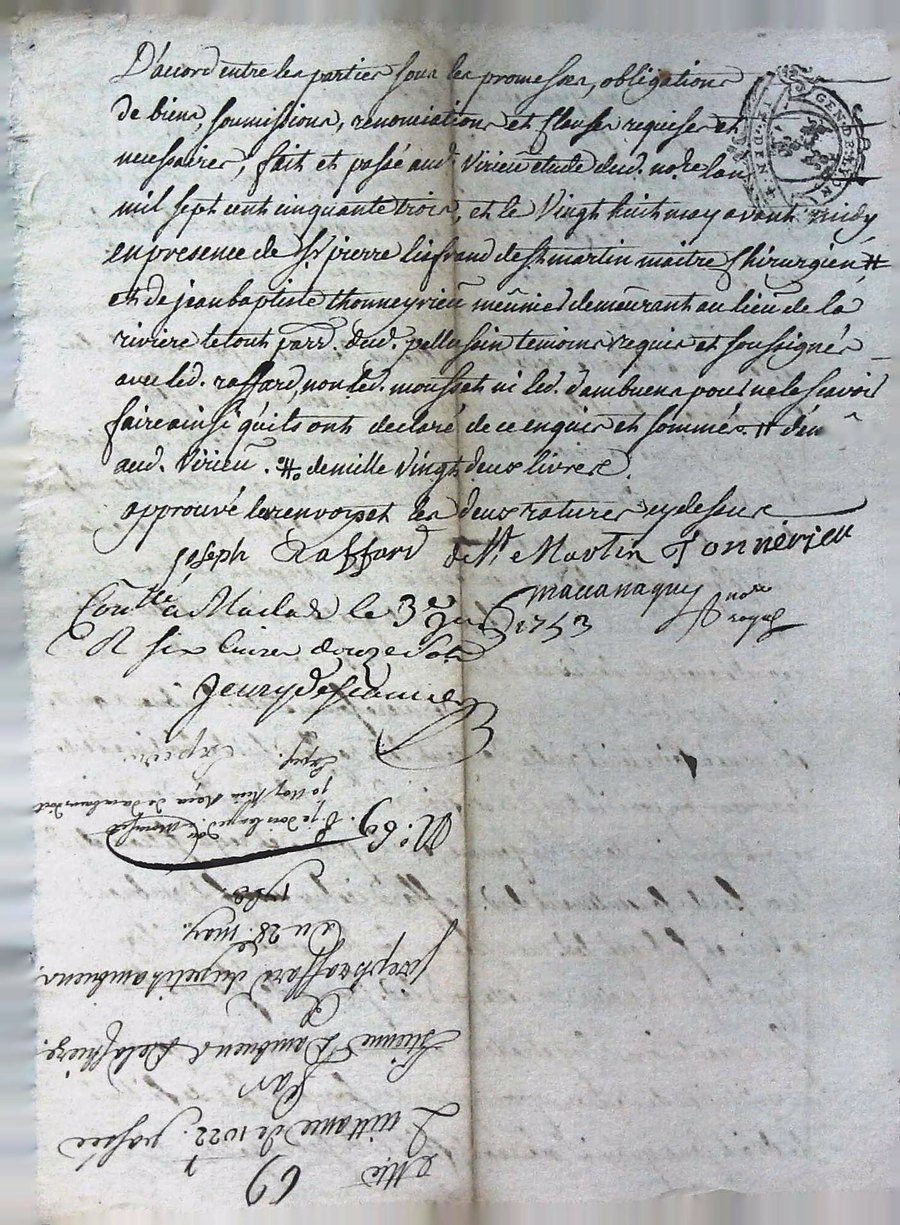 D'accord entre les parties sous les promesses, obligations
de biens, soumissions, renonciations et clauses requises et
necessaires, fait et passé aud. Virieu étude dud. no.re lan
mil sept cent cinquante trois, et le Vingt huit may avant midy
en presence de Sr pierre liefrand de St martin maitre Chirurgien #
et de jean baptiste thonneyrieu meûnier demeurant au lieu de la
riviere le tout parr. dud. pellussin temoins requis et soussignés
avec led. raffard, non led. mousset ni led. dambuens pour ne le scavoir
faire ainsi qu'ils ont declaré de ce enquis et sommés. #
aud. Virieu. #. de mille Vingt deux livres
approuvé les renvois et les deux ratures cy dessus
joseph Raffard de St Martin Tonnérieu
Conllé a Maclas le 3e 1753
R six livres douze sols
no.re
royal
GEN. DE LYON
N.o 69.
1753
du 28.e may.
joseph raffard du petit ambuens.
A
Etienne Dambuens de la
Par
Quittance de 1022.# passée
69